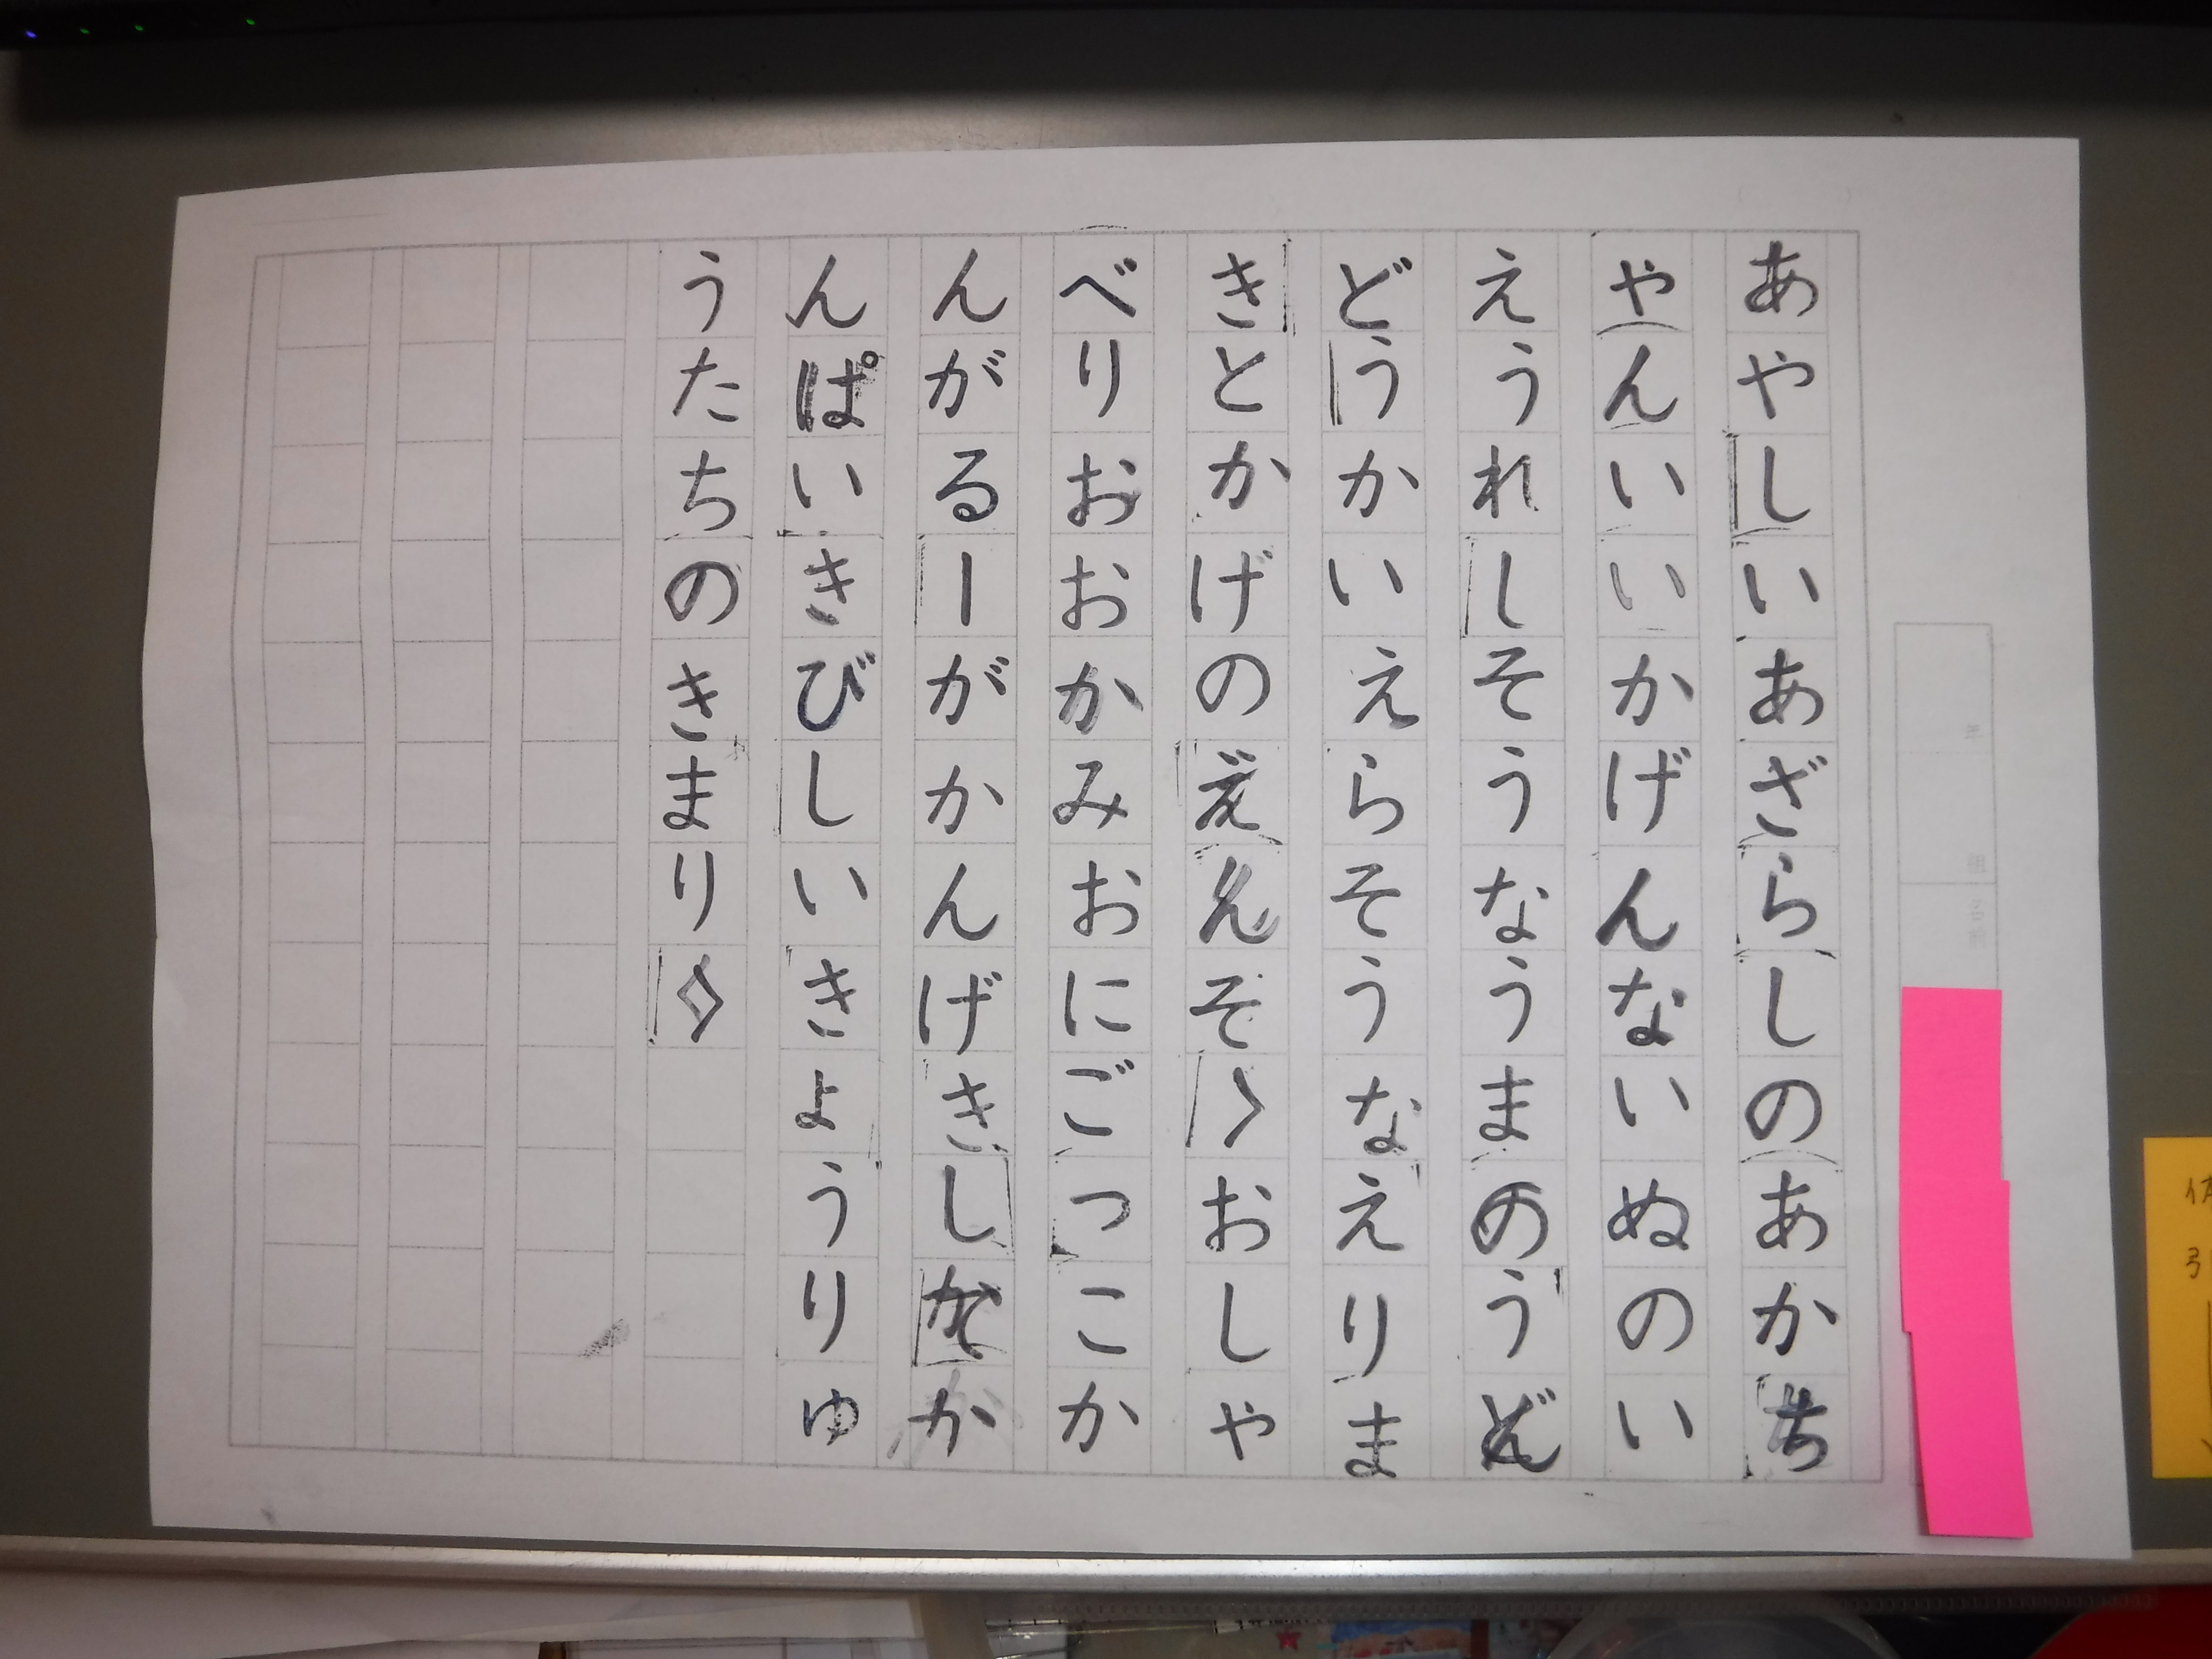 あやしいあざらしのあかち
やんいいかげんないぬのい
えうれしそうなうまのうん
どうかいえらそうなえりま
きとかげのええんそくおしゃ
べりおおかみおにごっこか
んがるーがかんげきしてか
んぱいきびしいきょうりゅ
うたちのきまり
年
組